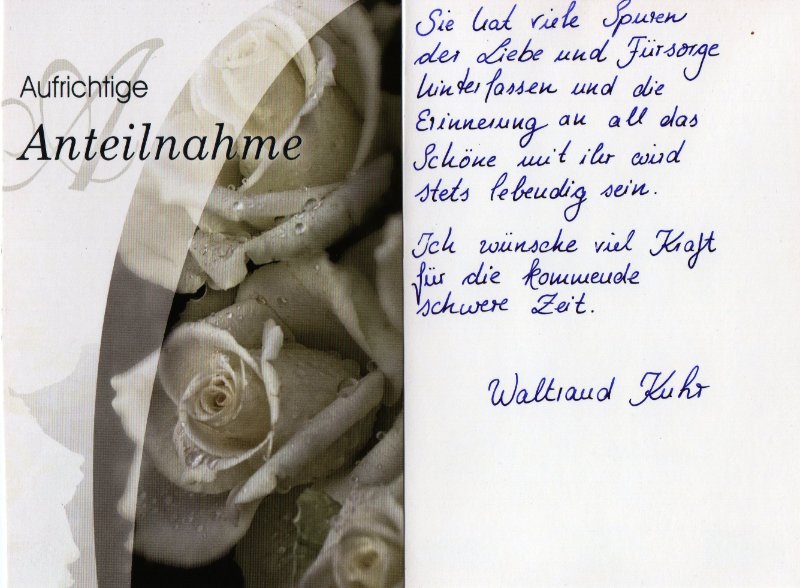 Aufrichtige
Anteilnahme
Sie hat viele Spuren
der Liebe und Fürsorge
hinterlassen und die
Erinnerung an all das
Schöne mit ihr wird
stets lebendig sein.
Ich wünsche viel Kraft
für die kommende
schwere Zeit.
Waltraud Kuhr